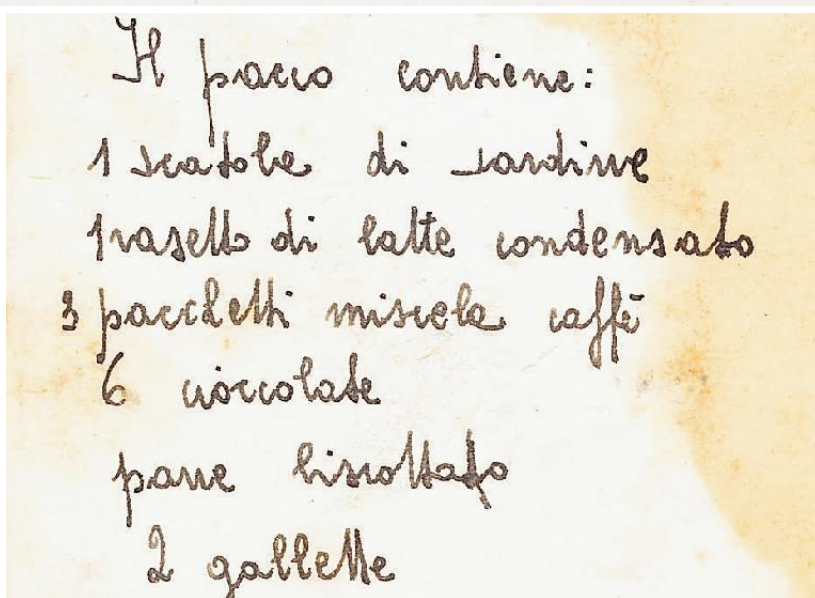 Il pacco contiene:
1 scatole di sardine
1 vasetto di latte condensato
3 pacchetti miscela caffè
6 cioccolate
pane biscottato
2 gallette